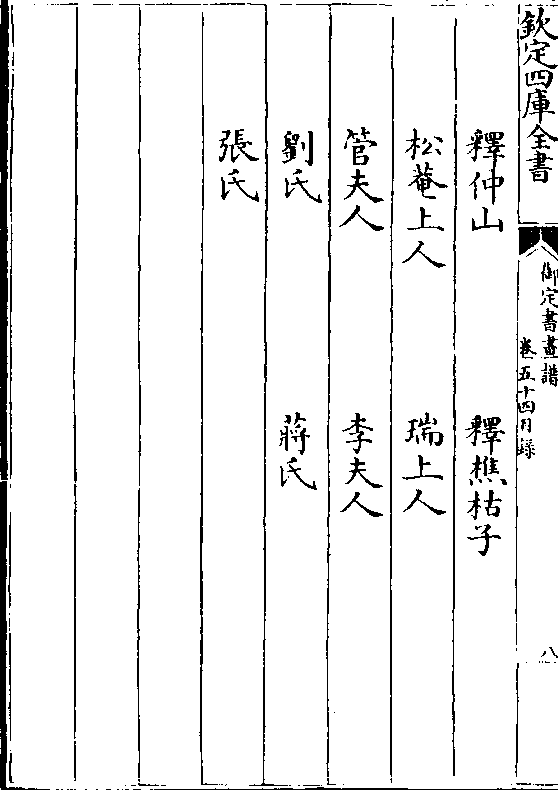 欽定四庫全書
御定書畫譜
卷五十四目錄
八
釋仲山　釋樵枯子
松菴上人　瑞上人
管夫人　李夫人
劉氏　蔣氏
張氏